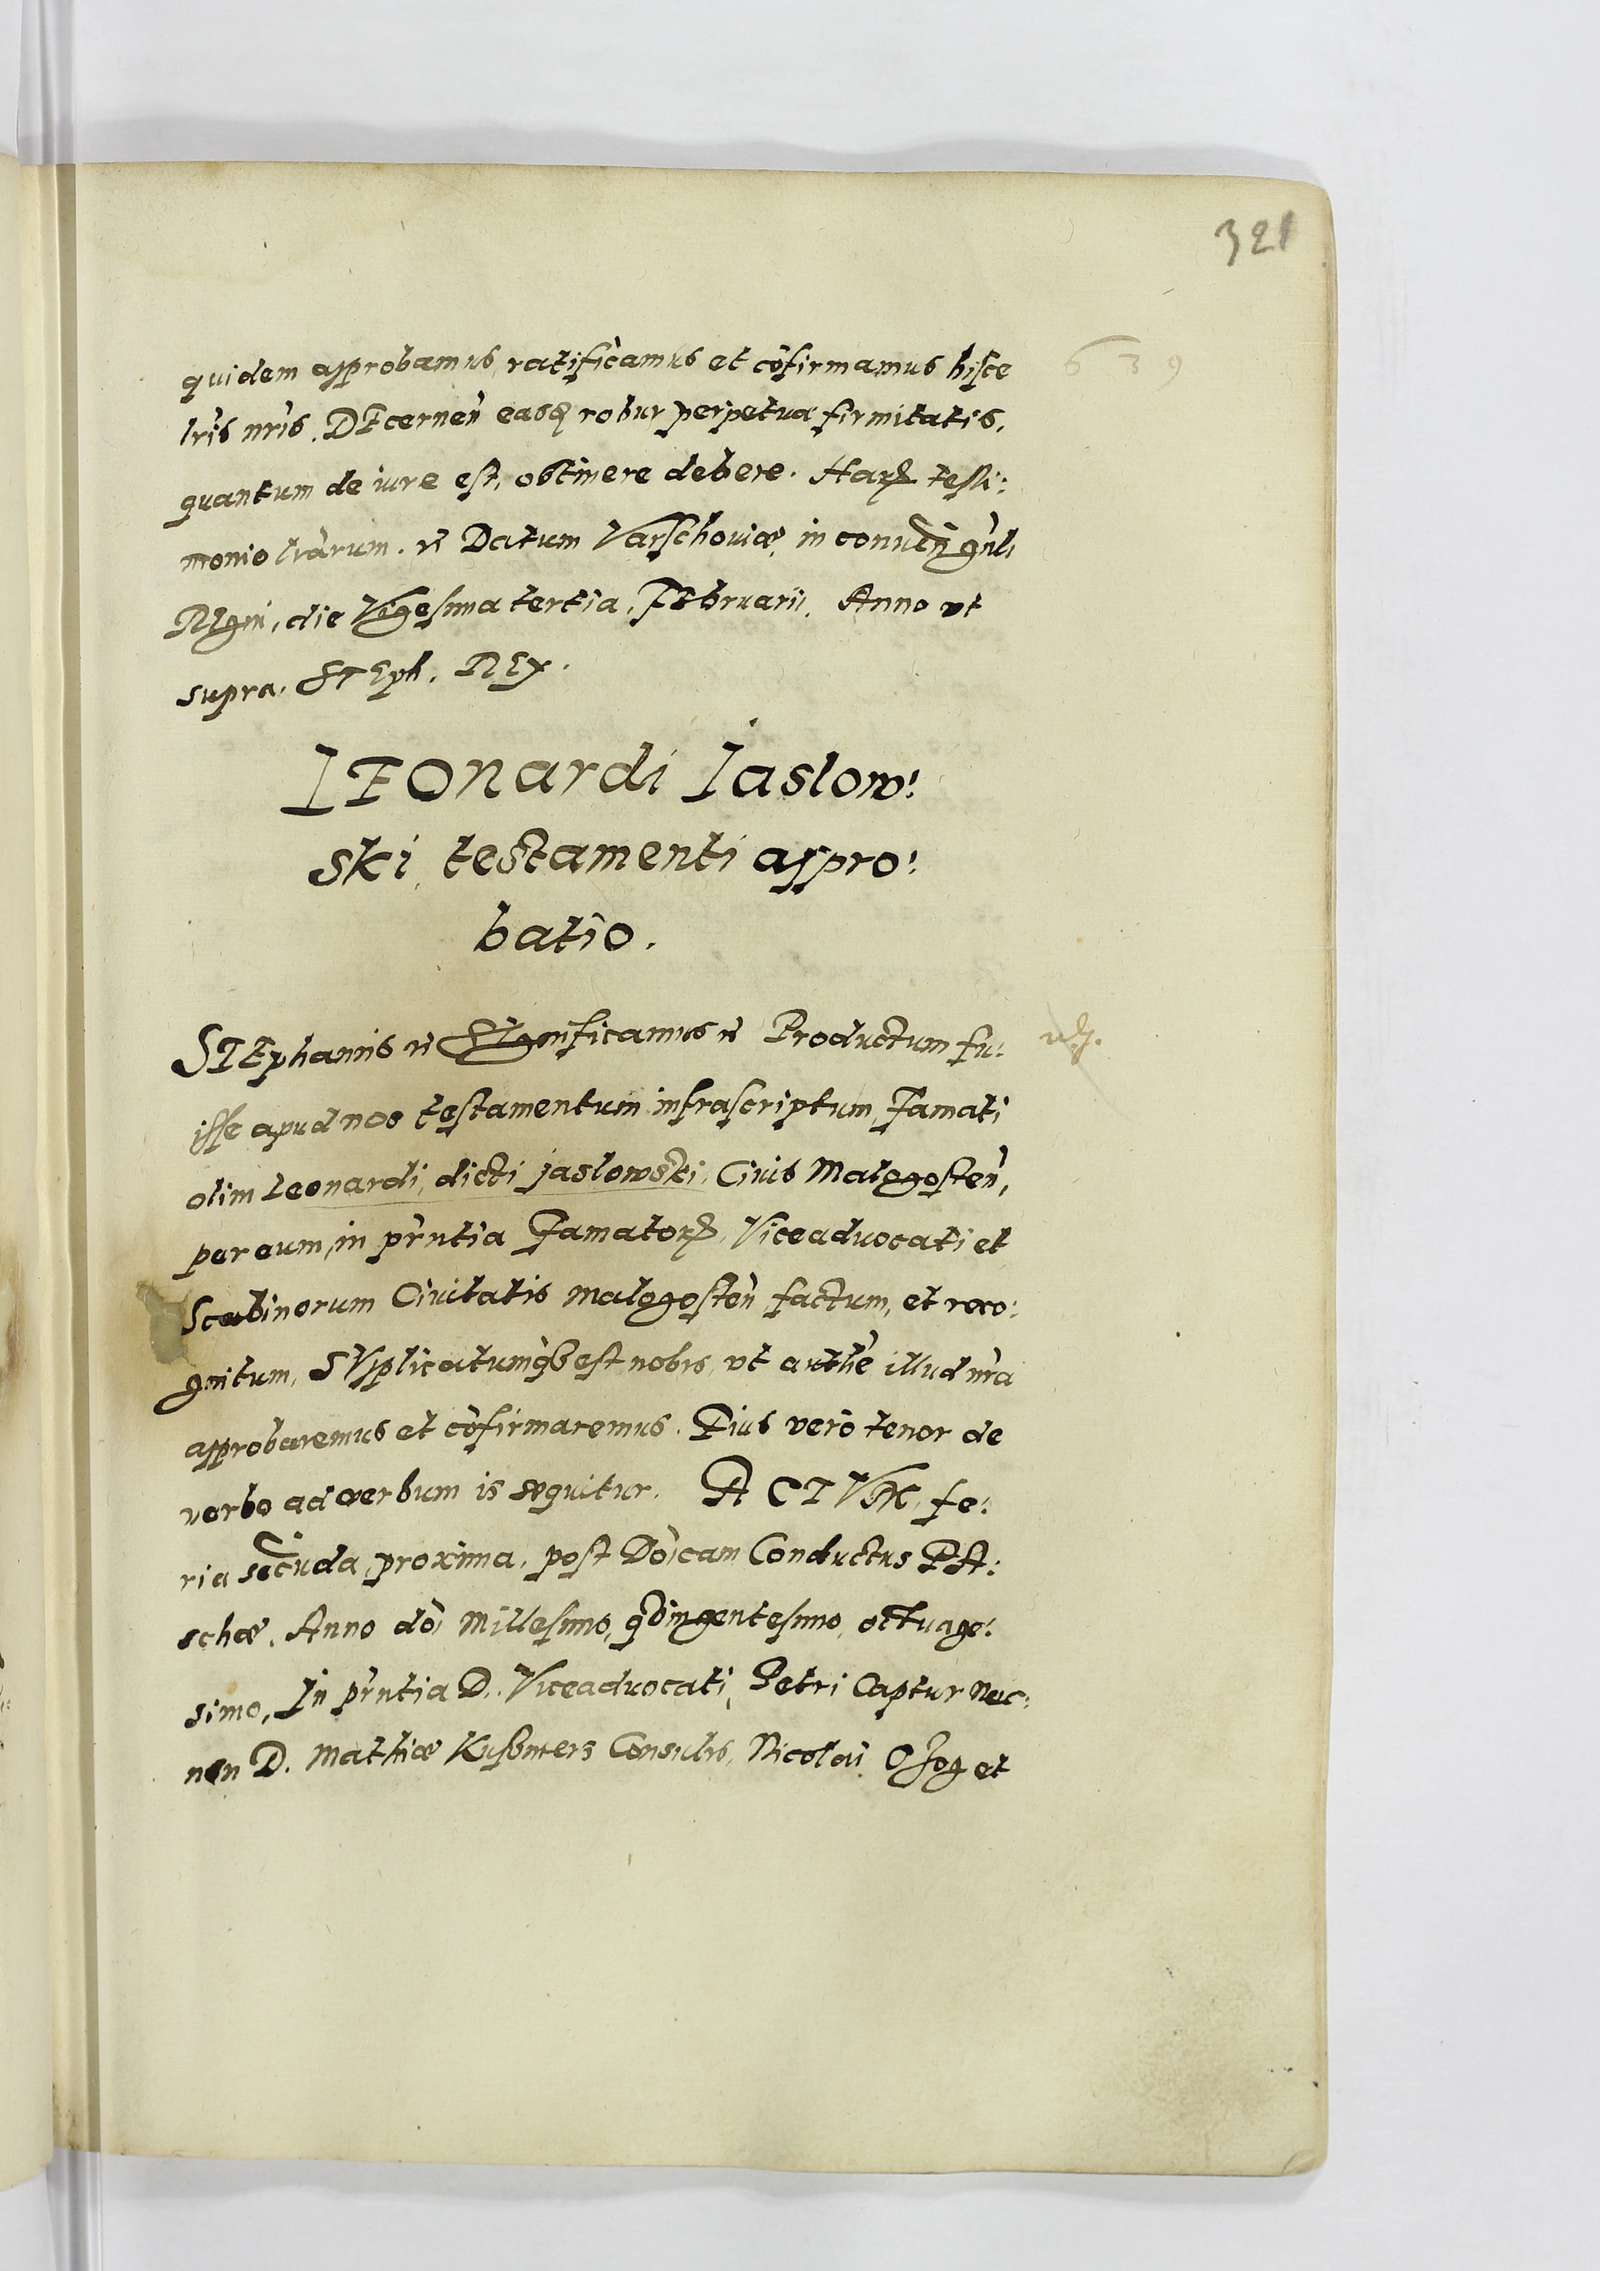 321
639
quidem approbamus, ratificamus et cõfirmamus hisce
lris nris. DEcernen easq robur perpetuæ firmitatis,
quantum de iure est, obtinere debere. Harꝝ testi:
monio lrarum. Datum Varschoviæ, in conuen gnli
REgni, die Vigesima tertia, FEbruarii, Anno vt
supra. STEph. REX.
LEOnardi Jaslow:
ski, testamenti appro:
batio.
STEphanus SIgnificamus Productum fu:
isse apud nos testamentum infrascriptum, Famati
olim Leonardi, dicti Jaslowski, Civis Malogosten,
per eum, in prntia Famatorꝝ, Viceadvocati et
Scabinorum Civitatis Malogosten factum, et reco:
gnitum, SVpplicatumq est nobis, vt authe illud nra
approbaremus et cõfirmaremus. Eius vero tenor de
verbo ad verbum is sequitur. ACTVM, fe:
ria secũda, proxima, post Doicam Conductus PA:
schæ, Anno doi Millesimo, qdingentesimo, octuage:
simo, In pr̃ntia D. Viceadvocati, Petri Captur Nec:
non D. Mathiæ Consulis, Nicolai et